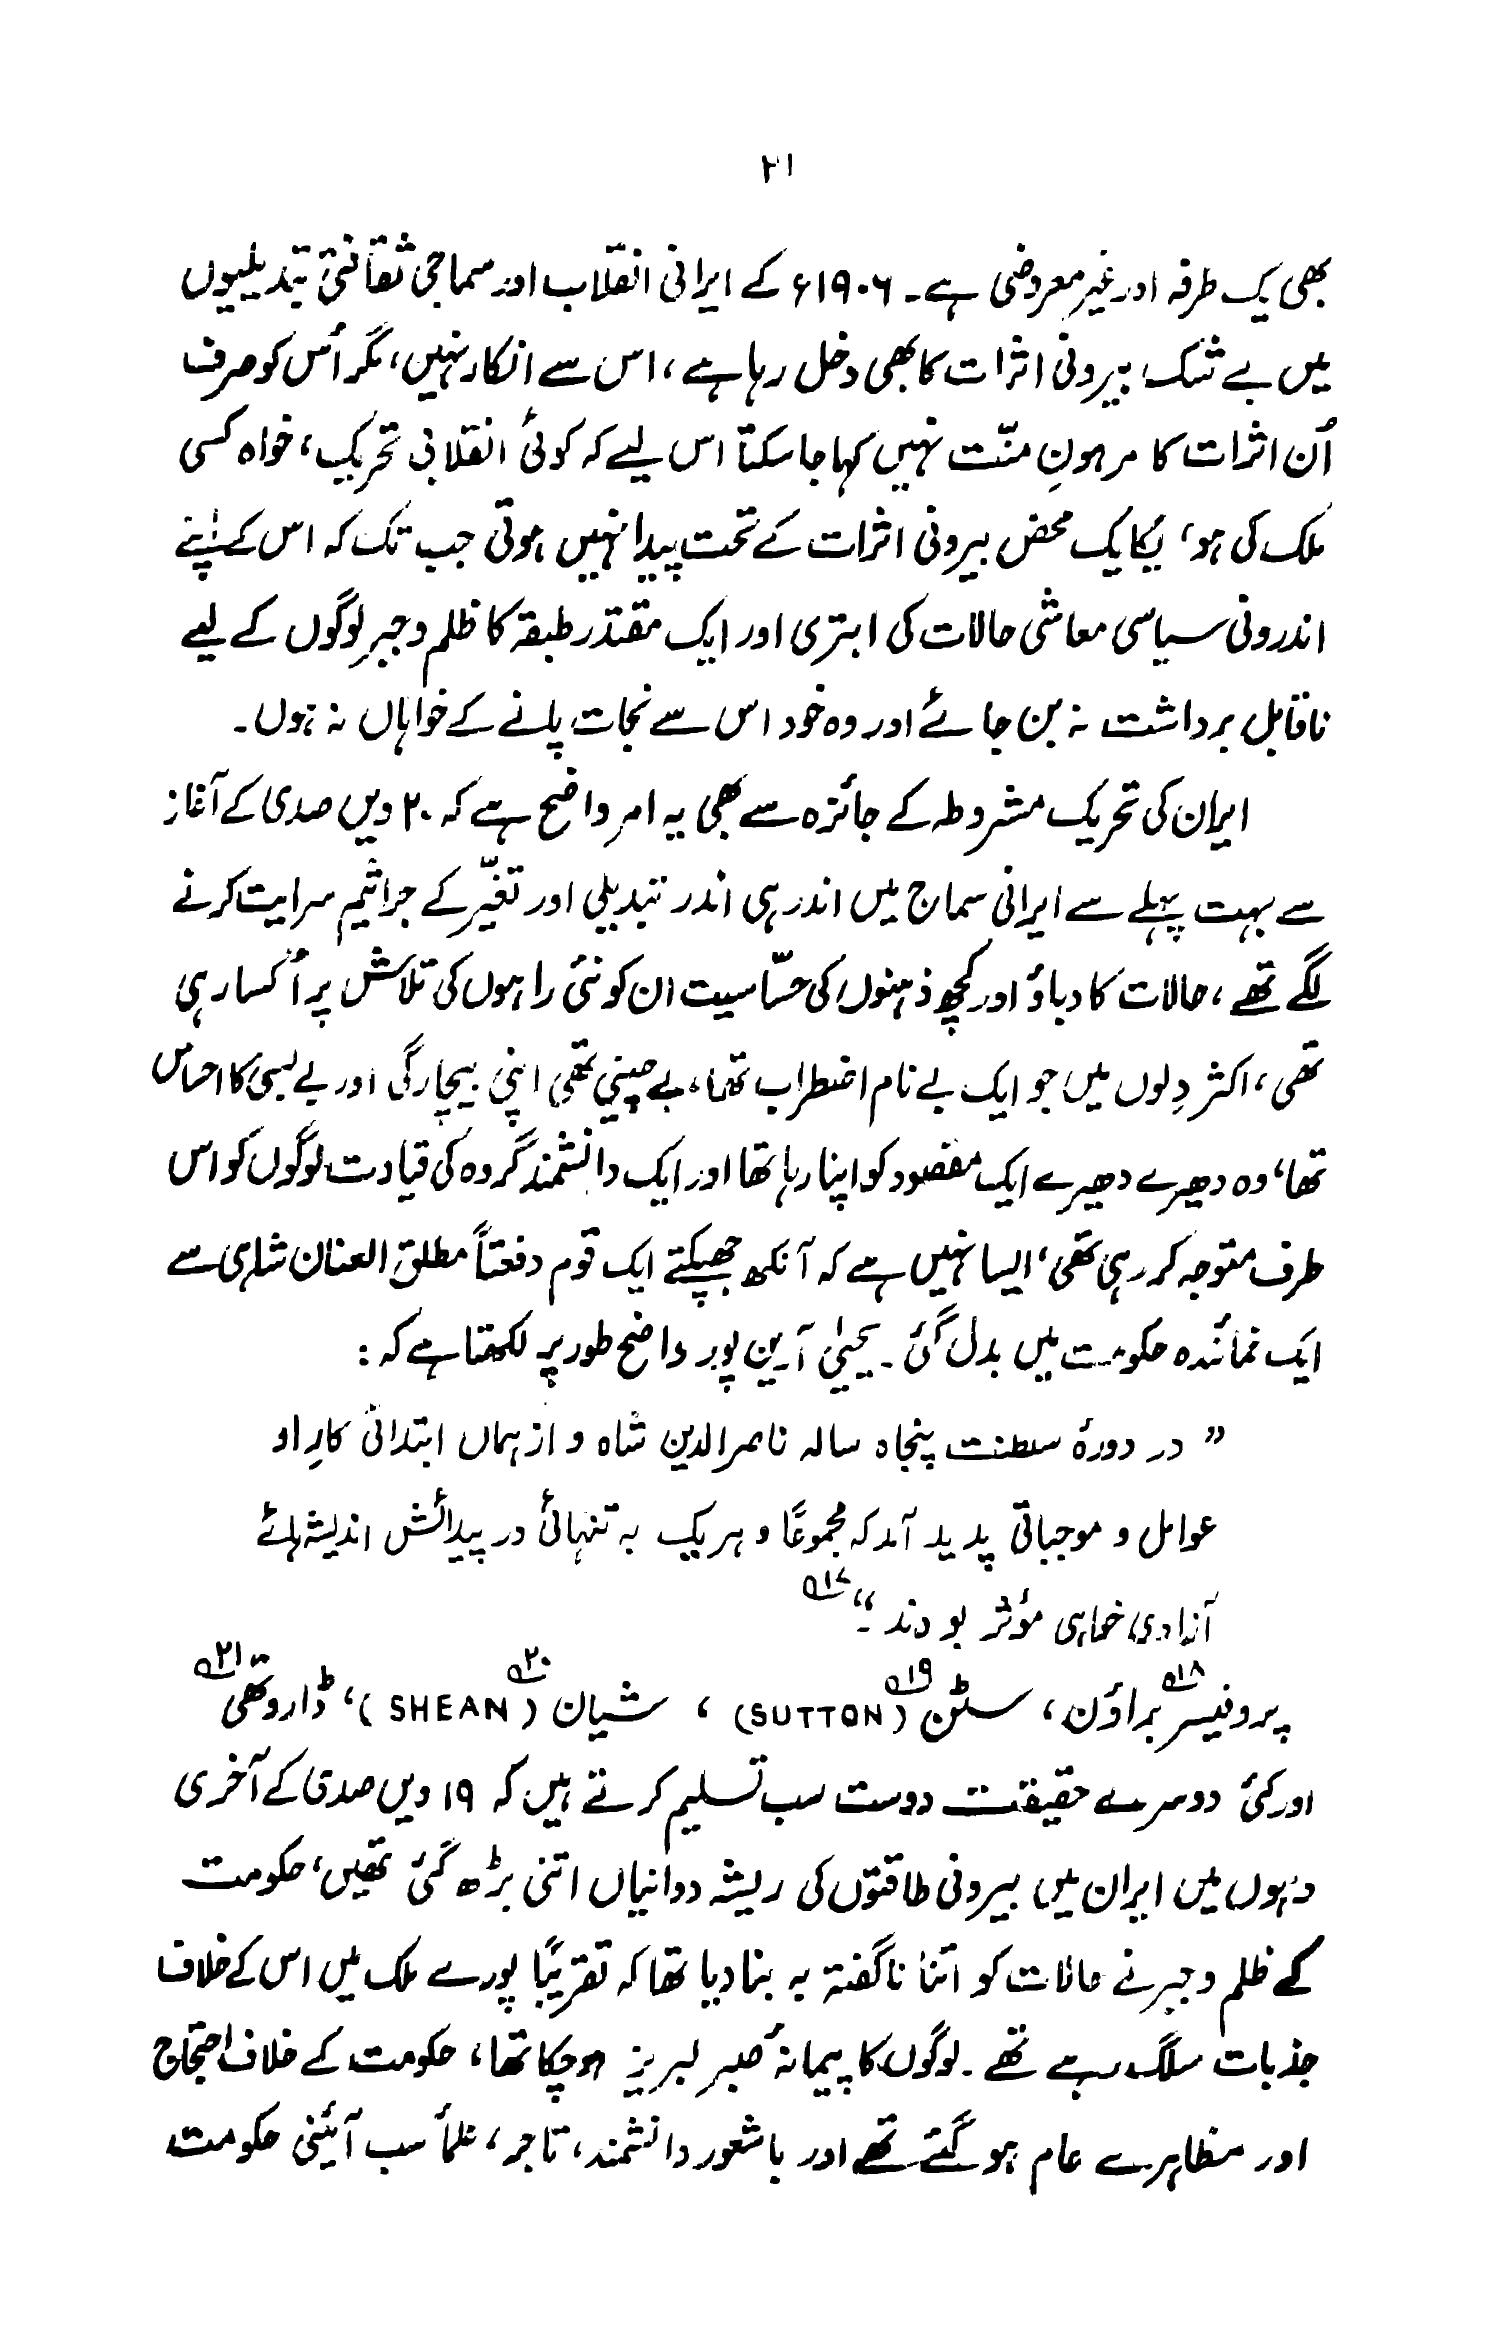 ۲۱
بھی یک طرفہ اور غیر معروضی ہے۔ ۱۹۰۶ء کے ایرانی انقلاب اور سماجی ثقافتی تبدیلیوں
میں بے شک بیرونی اثرات کا بھی دخل رہا ہے، اس سے انکار نہیں، مگر اُس کو صرف
اُن اثرات کا مرہونِ منّت نہیں کہا جا سکتا اس لیے کہ کوئی انقلابی تحریک، خواہ کسی
ملک کی ہو، یکایک محض بیرونی اثرات کے تحت پیدا نہیں ہوتی جب تک کہ اس کے اپنے
اندرونی سیاسی معاشی حالات کی ابتری اور ایک مقتدر طبقہ کا ظلم و جبر لوگوں کے لیے
ناقابل برداشت نہ بن جائے اور وہ خود اس سے نجات پانے کے خواہاں نہ ہوں۔
ایران کی تحریک مشروطہ کے جائزہ سے بھی یہ امر واضح ہے کہ ۲۰ ویں صدی کے آغاز
سے بہت پہلے سے ایرانی سماج میں اندر ہی اندر تبدیلی اور تغیّر کے جراثیم سرایت کرنے
لگے تھے، حالات کا دباؤ اور کچھ ذہنوں کی حسّاسیت ان کو نئی راہوں کی تلاش پر اُکسا رہی
تھی، اکثر دِلوں میں جو ایک بے نام اضطراب تھا، بے چینی تھی اپنی بیچارگی اور بے بسی کا احساس
تھا، وہ دھیرے دھیرے ایک مقصود کو اپنا رہا تھا اور ایک دانشمند گروہ کی قیادت لوگوں کو اس
طرف متوجہ کر رہی تھی، ایسا نہیں ہے کہ آنکھ جھپکتے ایک قوم دفعتاً مطلق العنان شاہی سے
ایک نمائندہ حکومت میں بدل گئی۔ یحییٰ آرین پور واضح طور پر لکھتا ہے کہ:
” در دورۂ سلطنت پنجاہ سالہ ناصرالدین شاہ و از ہماں ابتدائی کارِ او
عوامل و موجباتی پدید آمد کہ مجموعاً و ہر یک بہ تنہائی در پیدائش اندیشہ ہائے
آزادی خواہی مؤثر بودند۔“ ؂۱۷
پروفیسر براؤن؂۱۸، سٹن (SUTTON)؂۱۹، شیان (SHEAN)؂۲۰، ڈاروتھی؂۲۱
اور کئی دوسرے حقیقت دوست سب تسلیم کرتے ہیں کہ ۱۹ ویں صدی کے آخری
دہوں میں ایران میں بیرونی طاقتوں کی ریشہ دوانیاں اتنی بڑھ گئی تھیں، حکومت
کے ظلم و جبر نے حالات کو اتنا ناگفتہ بہ بنا دیا تھا کہ تقریباً پورے ملک میں اس کے خلاف
جذبات سلگ رہے تھے۔ لوگوں کا پیمانۂ صبر لبریز ہو چکا تھا، حکومت کے خلاف احتجاج
اور مظاہرے عام ہو گئے تھے اور باشعور دانشمند، تاجر، علمأ سب آئینی حکومت